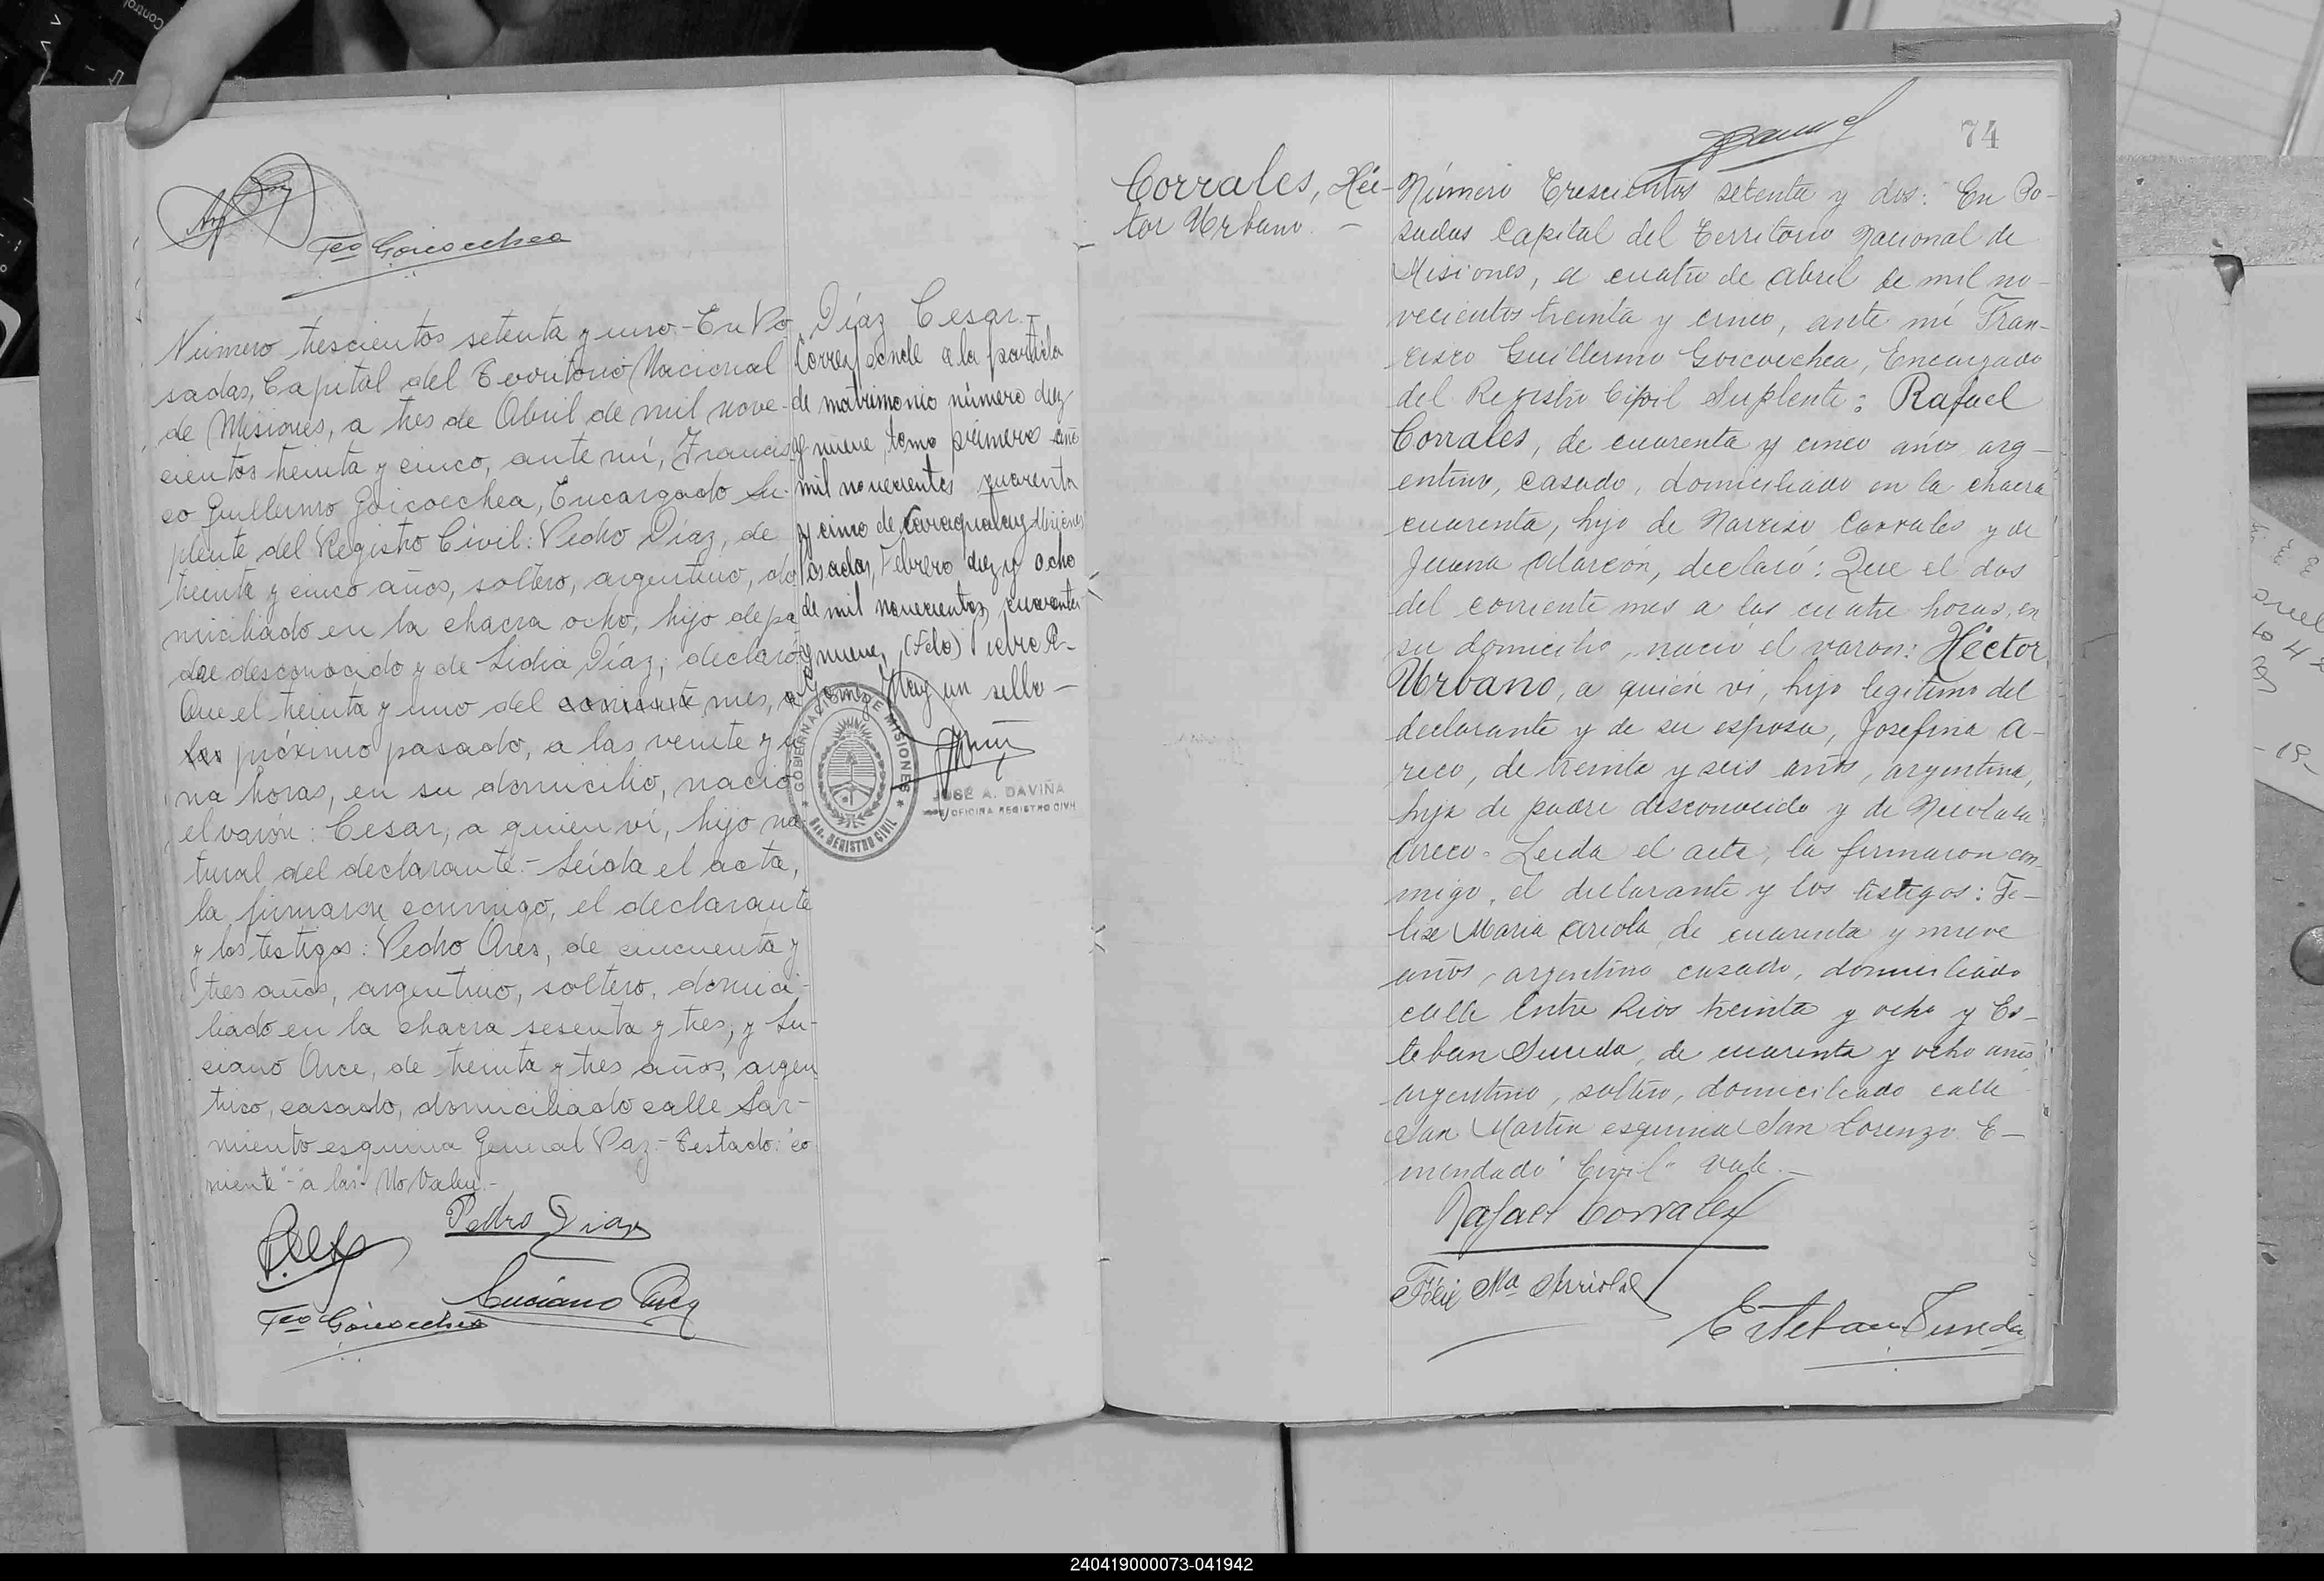 Fco Goicoechea
Número trescientos setenta y uno - En Po-
sadas, Capital del Territorio Nacional
de Misiones, a tres de Abril de mil nove-
cientos treinta y cinco, ante mí, Francis-
co Guillermo Goicoechea, Encargado Su-
plente del Registro Civil: Pedro Díaz, de
treinta y cinco años, soltero, argentino, do
miciliado en la chacra ocho, hijo de pa-
dre desconocido y de Lidia Díaz, declaró:
Que el treinta y uno del corriente mes, a
las próximo pasado, a las veinte y u
na horas, en su domicilio, nació
el varón: Cesar, a quien ví, hijo na-
tural del declarante.- Leída el acta,
la firmaron conmigo, el declarante
y los testigos: Pedro Ares, de cincuenta y
tres años, argentino, soltero, domici-
liado en la chacra sesenta y tres, y Lu-
ciano Arce, de treinta y tres años, argen
tino, casado, domiciliado calle Sar-
miento esquina General Paz.- Testado: "co
rriente" - "a las" No Valen.-
Pedro Diaz
Luciano Arce
Fco Goicoechea
Díaz Cesar.-
Corresponde a la partida
de matrimonio número diez
y nueve, tomo primero año
mil novecientos cuarenta
y cinco de Caraguatay Misiones
Posadas, Febrero diez y ocho
de mil novecientos cuarenta
y nueve, (Fdo)
Gomez Hay un sello -
GOBERNACION DE MISIONES
REGISTRO CIVIL
JOSÉ A. DAVIÑA
OFICINA REGISTRO CIVIL
74
Corrales, Héc-
tor Urbano. -
Número Trescientos setenta y dos: En Po-
sadas Capital del Territorio Nacional de
Misiones, a cuatro de abril de mil no-
vecientos treinta y cinco, ante mí Fran-
cisco Guillermo Goicoechea, Encargado
del Registro Civil Suplente: Rafael
Corrales, de cuarenta y cinco años arg-
entino, casado, domiciliado en la chacra
cuarenta, hijo de Narciso Corrales y de
Juana Alarcón, declaró: Que el dos
del corriente mes a las cuatro horas, en
su domicilio, nació el varon: Héctor
Urbano, a quién ví, hijo legítimo del
declarante y de su esposa, Josefina A-
reco, de treinta y seis años, argentina,
hija de padre desconocido y de Nicolasa
Areco. Leida el acta, la firmaron con-
migo, el declarante y los testigos: Fe-
lix Maria Ariola, de cuarenta y nueve
años, argentino casado, domiciliado
calle Entre Rios treinta y ocho y Es-
teban Sureda, de cuarenta y ocho años
argentino, soltero, domiciliado calle
San Martin esquina San Lorenzo. E-
mendado "Civil" Vale.-
Rafael Corrales
Félix Ma Arriola
Esteban Sureda
240419000073-041942